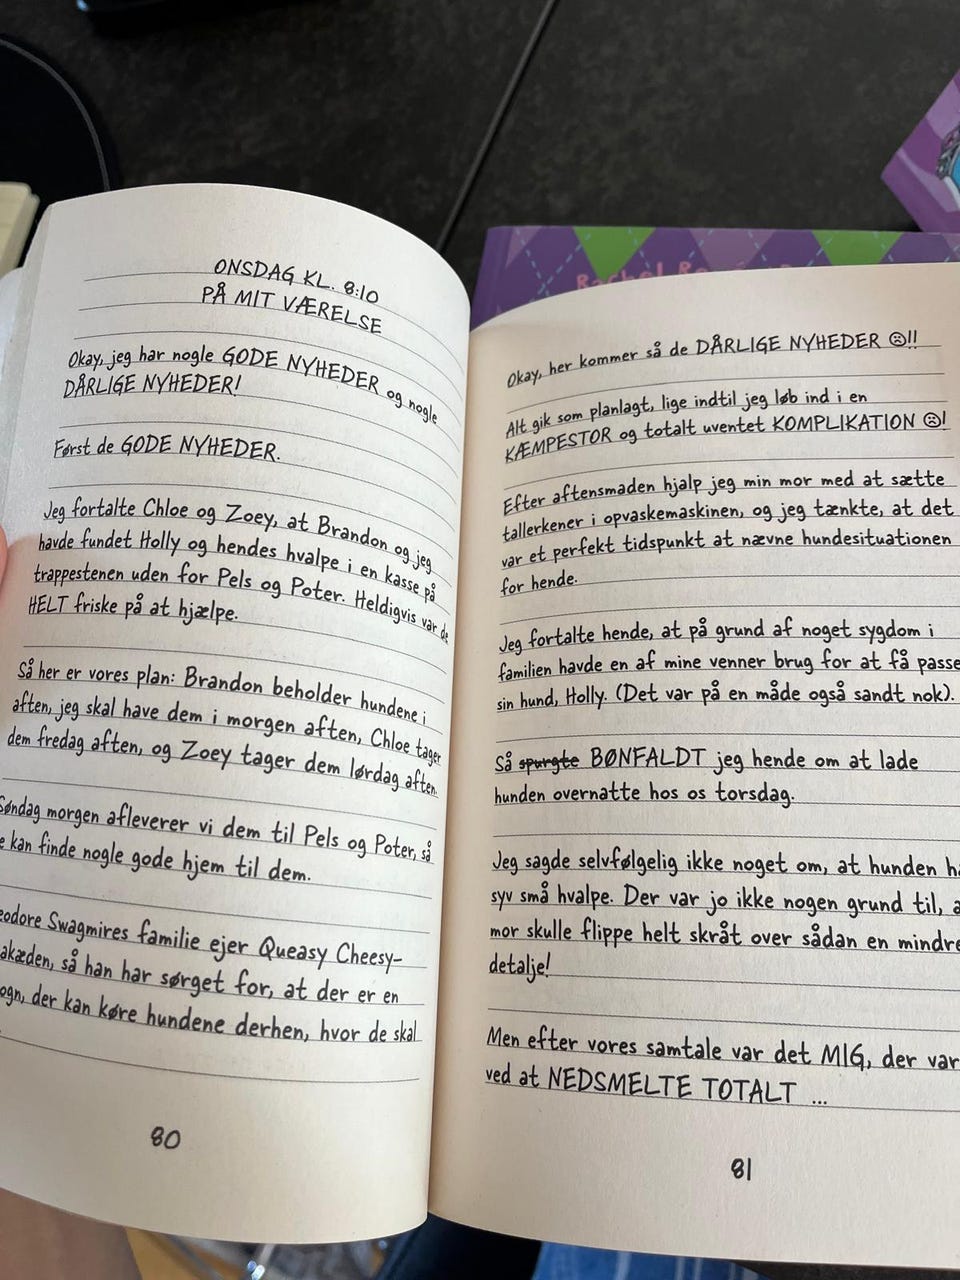 ONSDAG KL. 8:10
PÅ MIT VÆRELSE
Okay, jeg har nogle GODE NYHEDER og nogle
DÅRLIGE NYHEDER!
Først de GODE NYHEDER.
Jeg fortalte Chloe og Zoey, at Brandon og jeg
havde fundet Holly og hendes hvalpe i en kasse på
trappestenen uden for Pels og Poter. Heldigvis var de
HELT friske på at hjælpe.
Så her er vores plan: Brandon beholder hundene i
aften, jeg skal have dem i morgen aften, Chloe tager
dem fredag aften, og Zoey tager dem lørdag aften.
Søndag morgen afleverer vi dem til Pels og Poter, så
e kan finde nogle gode hjem til dem.
eodore Swagmires familie ejer Queasy Cheesy-
akæden, så han har sørget for, at der er en
ogn, der kan køre hundene derhen, hvor de skal
80
Rachel
Okay, her kommer så de DÅRLIGE NYHEDER ☹!!
Alt gik som planlagt, lige indtil jeg løb ind i en
KÆMPESTOR og totalt uventet KOMPLIKATION ☹!
Efter aftensmaden hjalp jeg min mor med at sætte
tallerkener i opvaskemaskinen, og jeg tænkte, at det
var et perfekt tidspunkt at nævne hundesituationen
for hende.
Jeg fortalte hende, at på grund af noget sygdom i
familien havde en af mine venner brug for at få passe
sin hund, Holly. (Det var på en måde også sandt nok).
Så spurgte BØNFALDT jeg hende om at lade
hunden overnatte hos os torsdag.
Jeg sagde selvfølgelig ikke noget om, at hunden ha
syv små hvalpe. Der var jo ikke nogen grund til, a
mor skulle flippe helt skråt over sådan en mindre
detalje!
Men efter vores samtale var det MIG, der var
ved at NEDSMELTE TOTALT ...
81